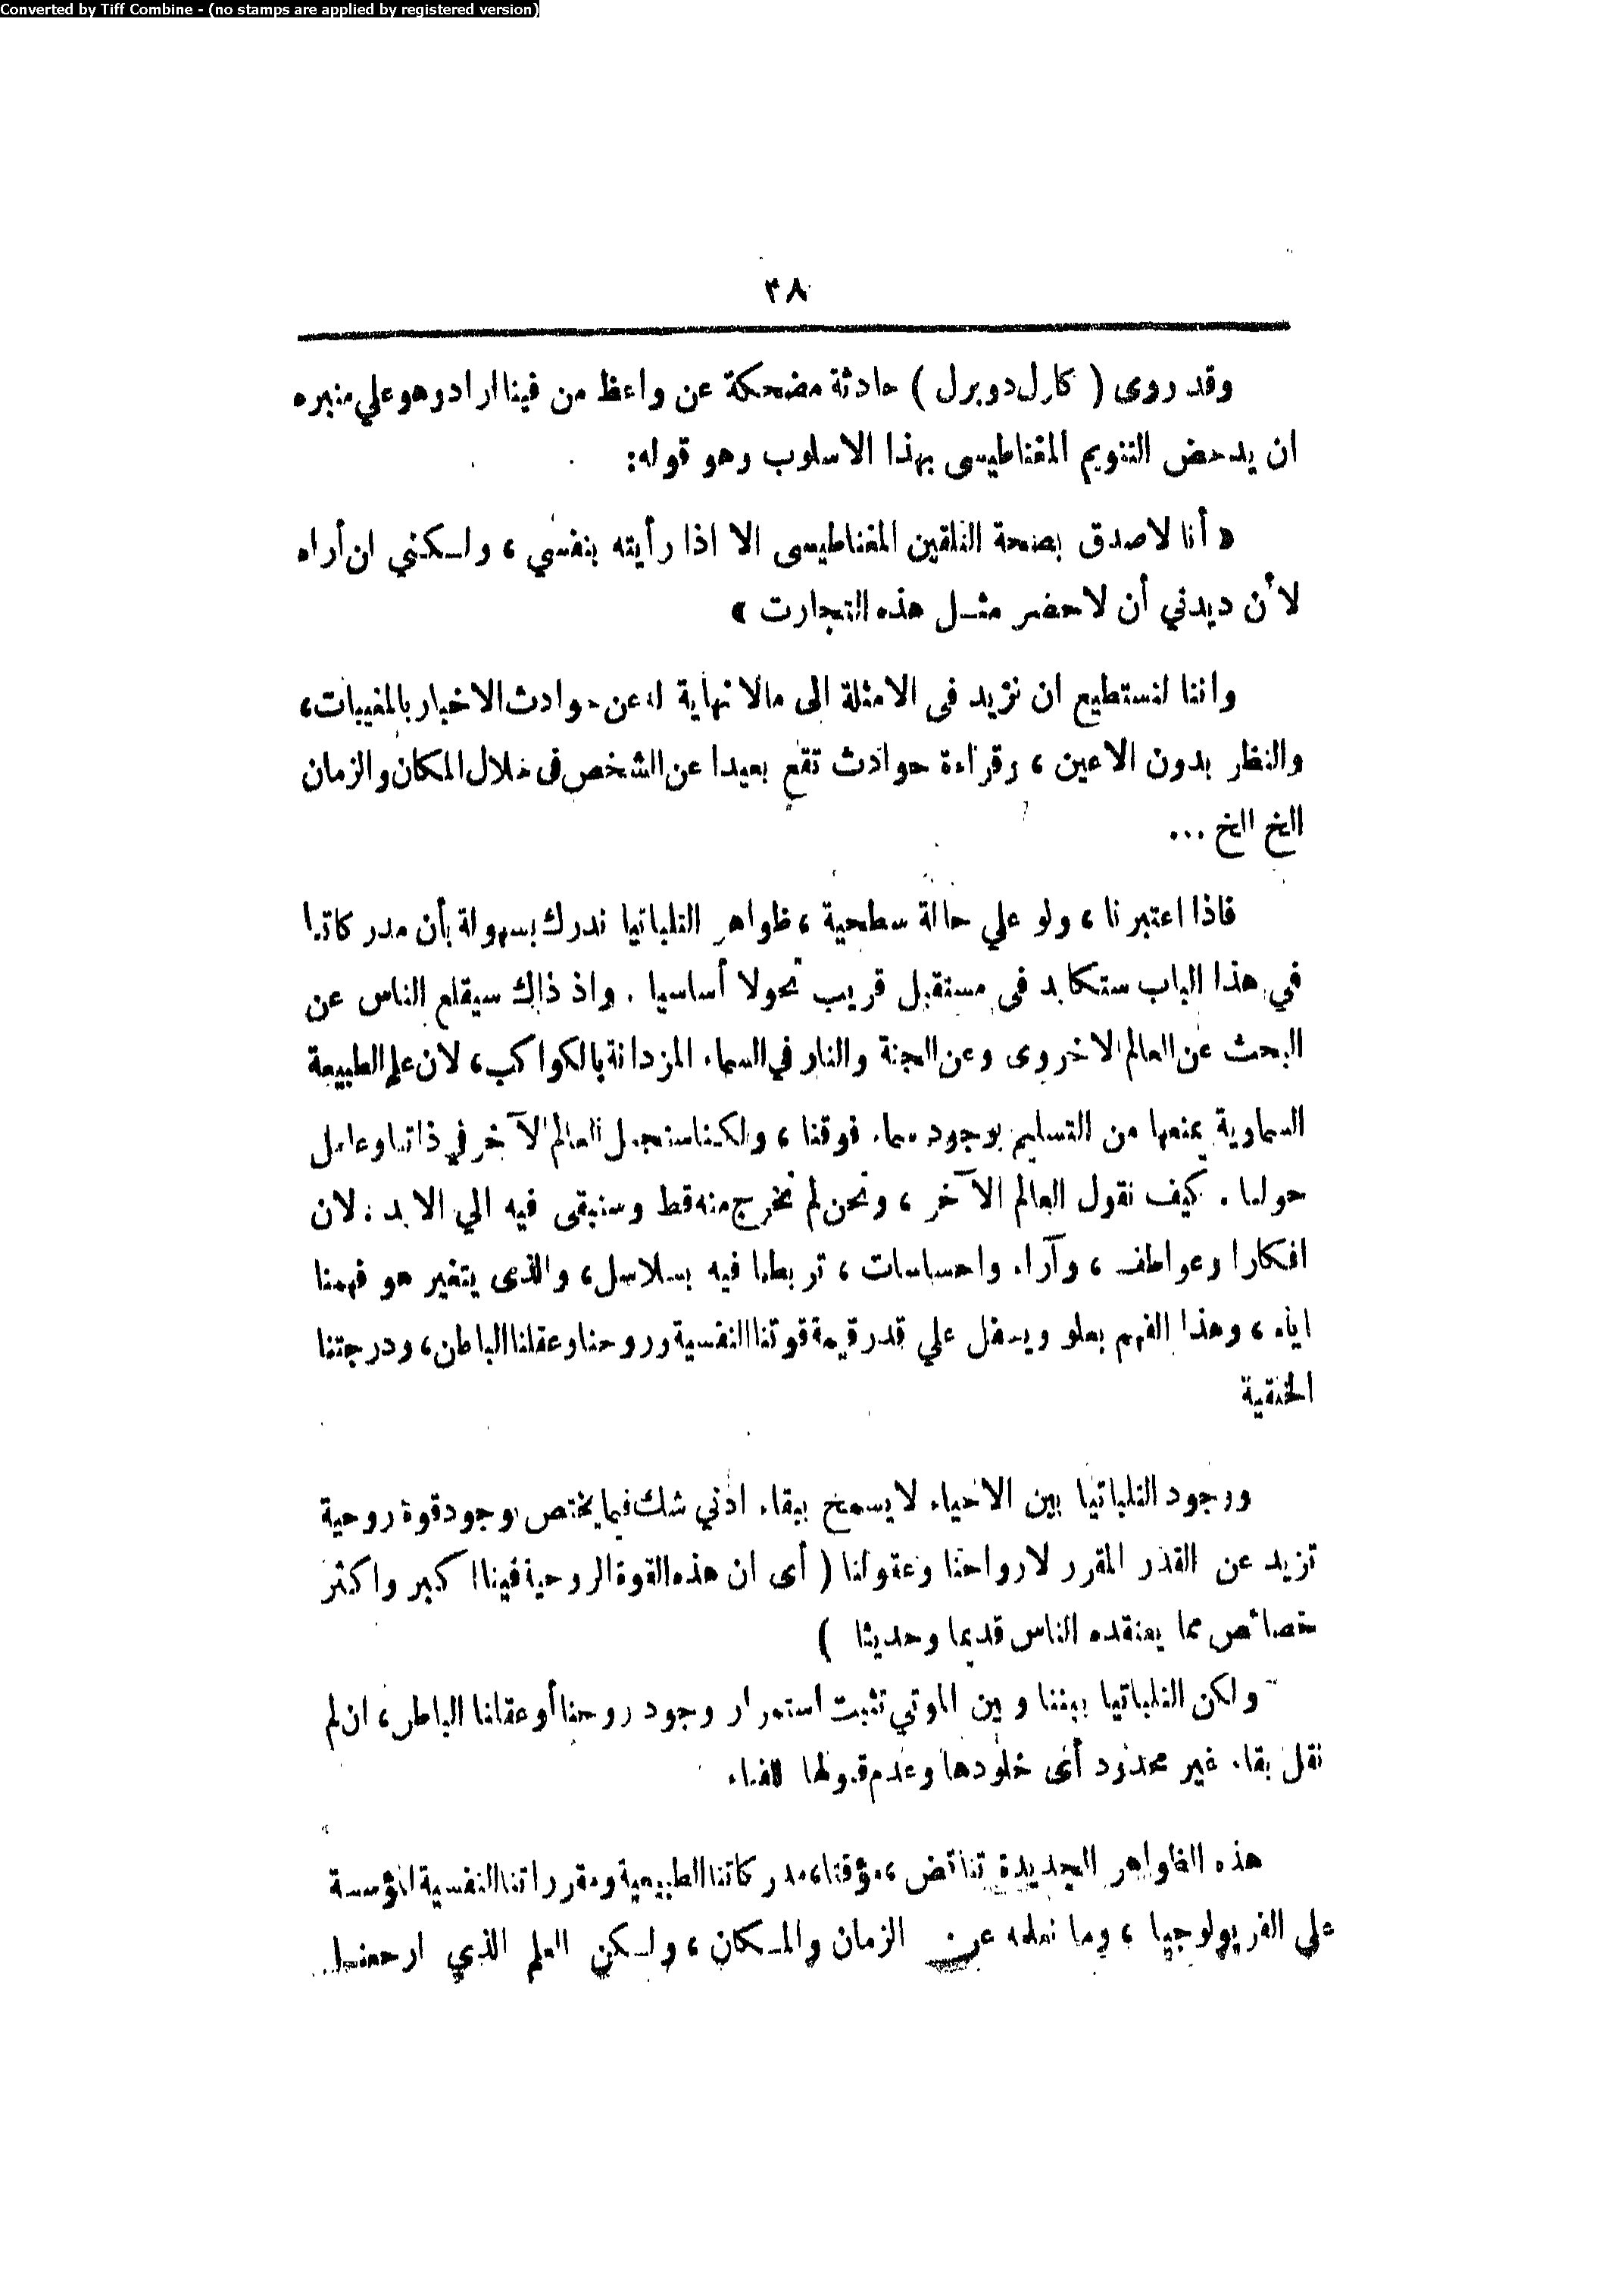 Converted by Tiff Combine - (no stamps are applied by registered version)
٣٨
وقد روى ( كارل دوبرل ) حادثة مضحكة عن واعظ من فينا اراد وهو علي منبره
ان يدحض التنويم المغناطيسى بهذا الاسلوب وهو قوله:
« أنا لا صدق بصحة التلقين المغناطيسى الا اذا رأيته بنفسي ، ولكنني ان أراه
لأن ديدني أن لا حضر مثل هذه التجارت »
واننا لنستطيع ان نزيد فى الامثلة الى مالا نهاية له عن حوادث الاخبار بالمغيبات،
والنظر بدون الاعين ، وقراءة حوادث تقع بعيدا عن الشخص فى خلال المكان والزمان
الخ الخ ...
فاذا اعتبرنا ، ولو علي حالة سطحية ، ظواهر التلباتيا ندرك بسهولة بأن مدركاتنا
في هذا الباب ستكابد فى مستقبل قريب تحولا أساسيا . واذ ذاك سيقلع الناس عن
البحث عن العالم الاخروى وعن الجنة والنار في السماء المزدانة بالكواكب، لان علم الطبيعة
السماوية يمنعها من التسليم بوجود سماء فوقنا ، ولكننا سنجعل العالم الآخر في ذاتنا وعامل
حولنا . كيف نقول العالم الآخر ، ونحن لم نخرج منه قط وسنبقى فيه الي الابد ؛ لان
افكارا وعواطف ، وآراء واحساسات ، تربطنا فيه بسلاسل، والذى يتغير هو فهمنا
اياه ، وهذا الفهم يعلو ويسفل علي قدر قيمة قوتنا النفسية وروحنا وعقلنا الباطن، ودرجتنا
الخلقية
ووجود التلباتيا بين الاحياء لا يسمح ببقاء ادني شك فيما يختص بوجود قوة روحية
تزيد عن القدر المقرر لارواحنا وعقولنا ( أى ان هذه القوة الروحية فينا اكبر واكثر
خصائص مما يعتقده الناس قديما وحديثا )
ولكن التلباتيا بيننا وبين الموتي تثبت استمرار وجود روحنا أو عقلنا الباطن، ان لم
نقل بقاء غير محدود أى خلودها وعدم قبولها للفناء
هذه الظواهر الجديدة تناقض ، مؤقتا، مدركاتنا الطبيعية ومقرراتنا النفسية المؤسسة
على الفزيولوجيا ، وما نعلمه عن الزمان والمكان ، ولكن العلم الذي